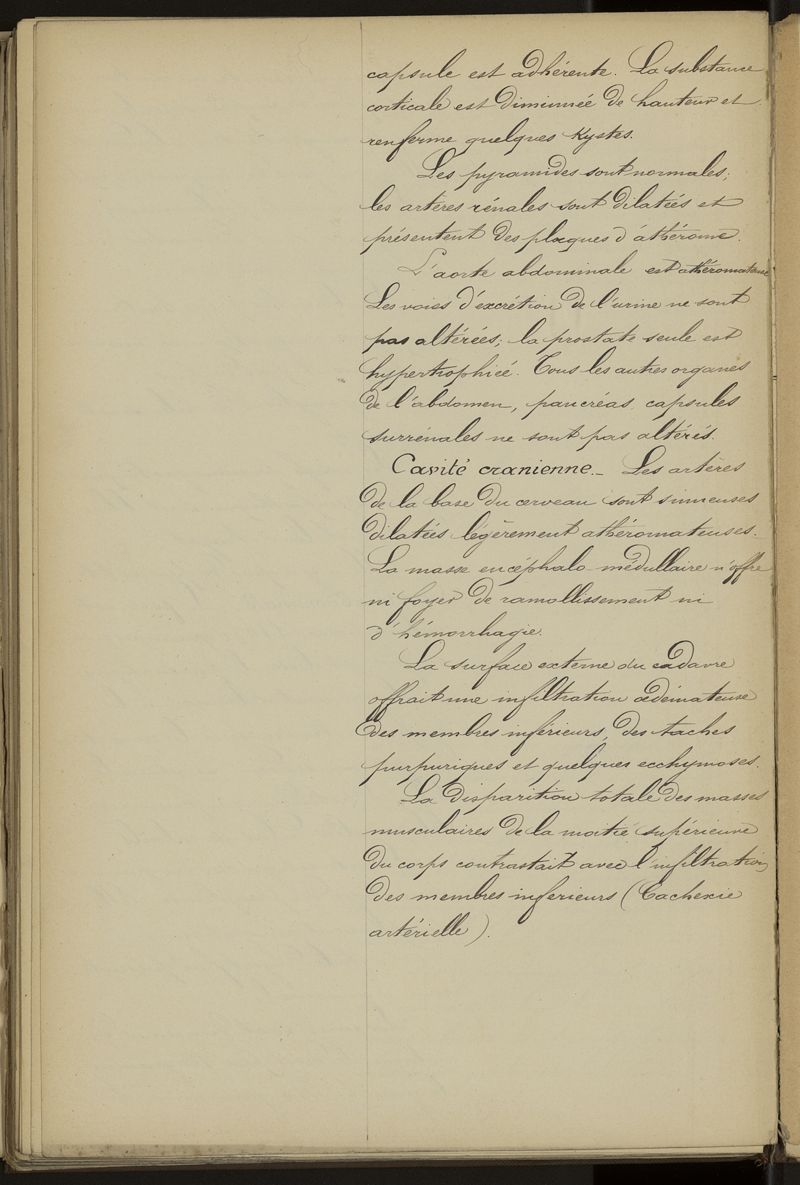 capsule est adhérente. La substance
corticale est diminuée de hauteur et
renferme quelques Kystes.
Les pyramides sont normales;
les artères rénales sont dilatées et
présentent des plaques d'athérome.
L'aorte abdominale est athéromateuse
Les voies d'excrétion de l'urine ne sont
pas altérées; la prostate seule est
hypertrophiée. Tous les autres organes
de l'abdomen, pancréas, capsules
surrénales ne sont pas altérés.
Cavité cranienne._ Les artères
de la base du cerveau sont sinueuses
dilatées légèrement athéromateuses.
La masse encéphalo-médullaire n'offre
ni foyer de ramollissement ni
d'hémorrhagie.
La surface externe du cadavre
offrait une infiltration œdémateuse
des membres inférieurs, des taches
purpuriques et quelques ecchymoses.
La disparition totale des masses
musculaires de la moitié supérieure
du corps contrastait avec l'infiltration
des membres inférieurs (Cachexie
artérielle).